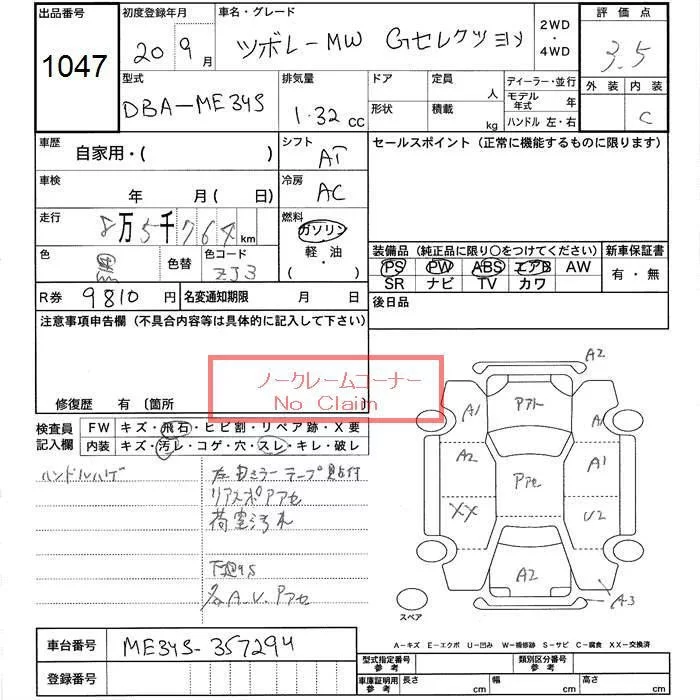 出品番号
1047
初度登録年月
20 9月
車名・グレード
シボレーMW Gセレクション
2WD
・
4WD
評価点
3.5
外装 内装
C
型式
DBA-ME34S
排気量
1.32 cc
ドア
形状
定員 人
積載 kg
ディーラー・並行
モデル年式 年
ハンドル 左・右
車歴
自家用・( )
シフト
AT
セールスポイント (正常に機能するものに限ります)
車検
年 月 ( 日)
冷房
AC
走行
8万5千764 km
燃料
ガソリン
軽・油
( ・ )
色
色替
色コード
ZJ3
装備品 (純正品に限り○をつけてください)
PS PW ABS エアB AW
SR ナビ TV カワ
新車保証書
有・無
R券 9810 円
名変通知期限 月 日
後日品
注意事項申告欄 (不具合内容等は具体的に記入して下さい)
ノークレームコーナー
No Claim
修復歴 有 〔箇所
検査員
記入欄
FW キズ・飛石・ヒビ割・リペア跡・X要
内装 キズ・汚レ・コゲ・穴・スレ・キレ・破レ
ハンドルハゲ
リアスポアアセ
荷室汚れ
下廻りS
A2
A1
Pアト
A1
A2
Pアセ
A1
XX
U2
A2
A3
スペア
A-キズ E-エクボ U-凹み W-補修跡 S-サビ C-腐食 XX-交換済
車台番号
ME34S-357294
登録番号
型式指定番号
参考
類別区分番号
参考
車庫証明用
参考
長さ cm
幅 cm
高さ cm